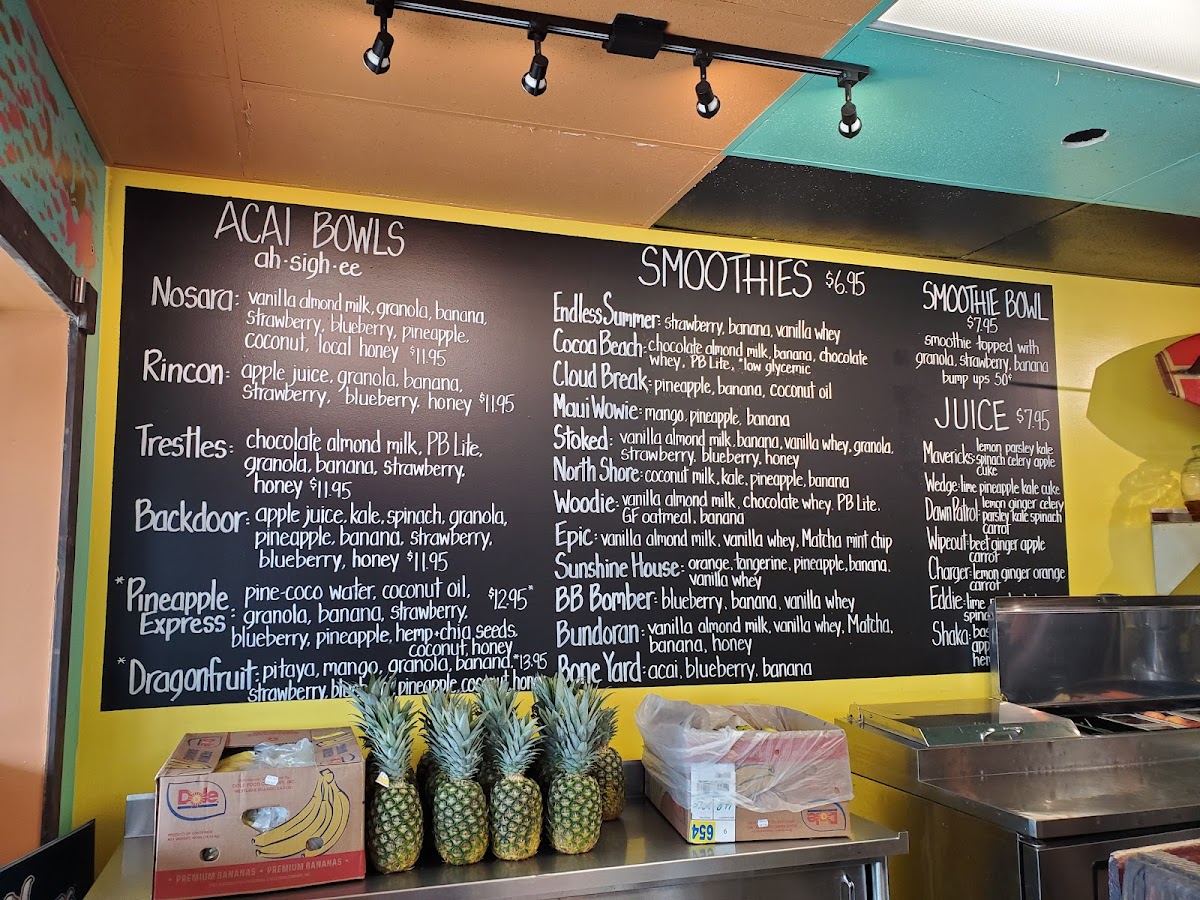 ACAI BOWLS
ah·sigh·ee
Nosara: vanilla almond milk, granola, banana,
strawberry, blueberry, pineapple,
coconut, local honey $11.95
Rincon: apple juice, granola, banana,
strawberry, blueberry, honey $11.95
Trestles: chocolate almond milk, PB Lite,
granola, banana, strawberry,
honey $11.95
Backdoor: apple juice, kale, spinach, granola,
pineapple, banana, strawberry,
blueberry, honey $11.95
*Pineapple Express: pine-coco water, coconut oil, $12.95*
granola, banana, strawberry,
blueberry, pineapple, hemp+chia seeds,
coconut, honey
*Dragonfruit: pitaya, mango, granola, banana, *13.95
strawberry, pineapple coconut
SMOOTHIES $6.95
Endless Summer: strawberry, banana, vanilla whey
Cocoa Beach: chocolate almond milk, banana, chocolate
whey, PB Lite, *low glycemic
Cloud Break: pineapple, banana, coconut oil
Maui Wowie: mango, pineapple, banana
Stoked: vanilla almond milk, banana, vanilla whey, granola,
strawberry, blueberry, honey
North Shore: coconut milk, kale, pineapple, banana
Woodie: vanilla almond milk, chocolate whey, PB Lite,
GF oatmeal, banana
Epic: vanilla almond milk, vanilla whey, Matcha, mint chip
Sunshine House: orange, tangerine, pineapple, banana,
vanilla whey
BB Bomber: blueberry, banana, vanilla whey
Bundoran: vanilla almond milk, vanilla whey, Matcha,
banana, honey
Bone Yard: acai, blueberry, banana
SMOOTHIE BOWL
$7.95
smoothie topped with
granola, strawberry, banana
bump ups 50¢
JUICE $7.95
Mavericks: lemon parsley kale
spinach celery apple
cuke
Wedge: lime pineapple kale cuke
Dawn Patrol: lemon ginger celery
parsley kale spinach
carrot
Wipeout: beet ginger apple
carrot
Charger: lemon ginger orange
carrot
Eddie: lime
Shaka:
Dole
PREMIUM BANANAS • PREMIUM BANANAS
Dole
654